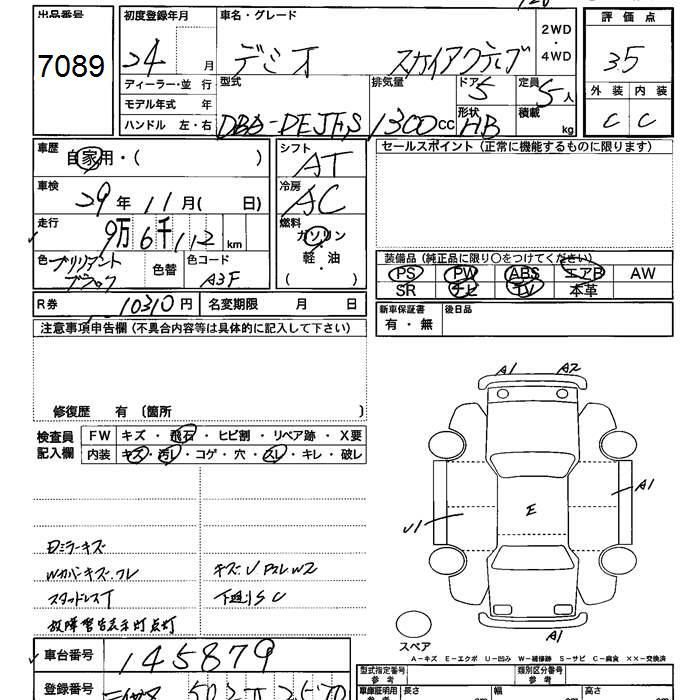 出品番号
7089
初度登録年月
24 月
車名・グレード
デミオ スカイアクティブ
2WD
・
4WD
評価点
3.5
外装 内装
C C
ディーラー・並 行
モデル年式 年
ハンドル 左・右
型式
DBA-DEJFS
排気量
1300cc
ドア
5
形状
HB
定員
5人
積載
kg
車歴
自家用・( )
車検
29年11月( 日)
走行
9万6千112km
色 ブリリアント
ブラック
色替
色コード
A3F
シフト
AT
冷房
AC
燃料
ガソリン
軽・油
( )
セールスポイント(正常に機能するものに限ります)
装備品(純正品に限り○をつけてください)
PS PW ABS エアB AW
SR ナビ TV 本革
R券 10310円
名変期限 月 日
新車保証書
有・無
後日品
注意事項申告欄(不具合内容等は具体的に記入して下さい)
修復歴 有 〔箇所 〕
検査員
記入欄
FW キズ・飛石・ヒビ割・リペア跡・X要
内装 キズ・汚レ・コゲ・穴・スレ・キレ・破レ
A1 A2
A1
U1
E
A1
スペア
Dミラーキズ
Wカバーキズ.ワレ
スタッドレスT
故障警告表示灯点灯
キズ.U PスレW2
下廻りS C
A-キズ E-エクボ U-凹み W-補修跡 S-サビ C-腐食 ××-交換済
車台番号
145879
登録番号
503
型式指定番号
参考
類別区分番号
参考
車庫証明用
長さ
幅
高さ